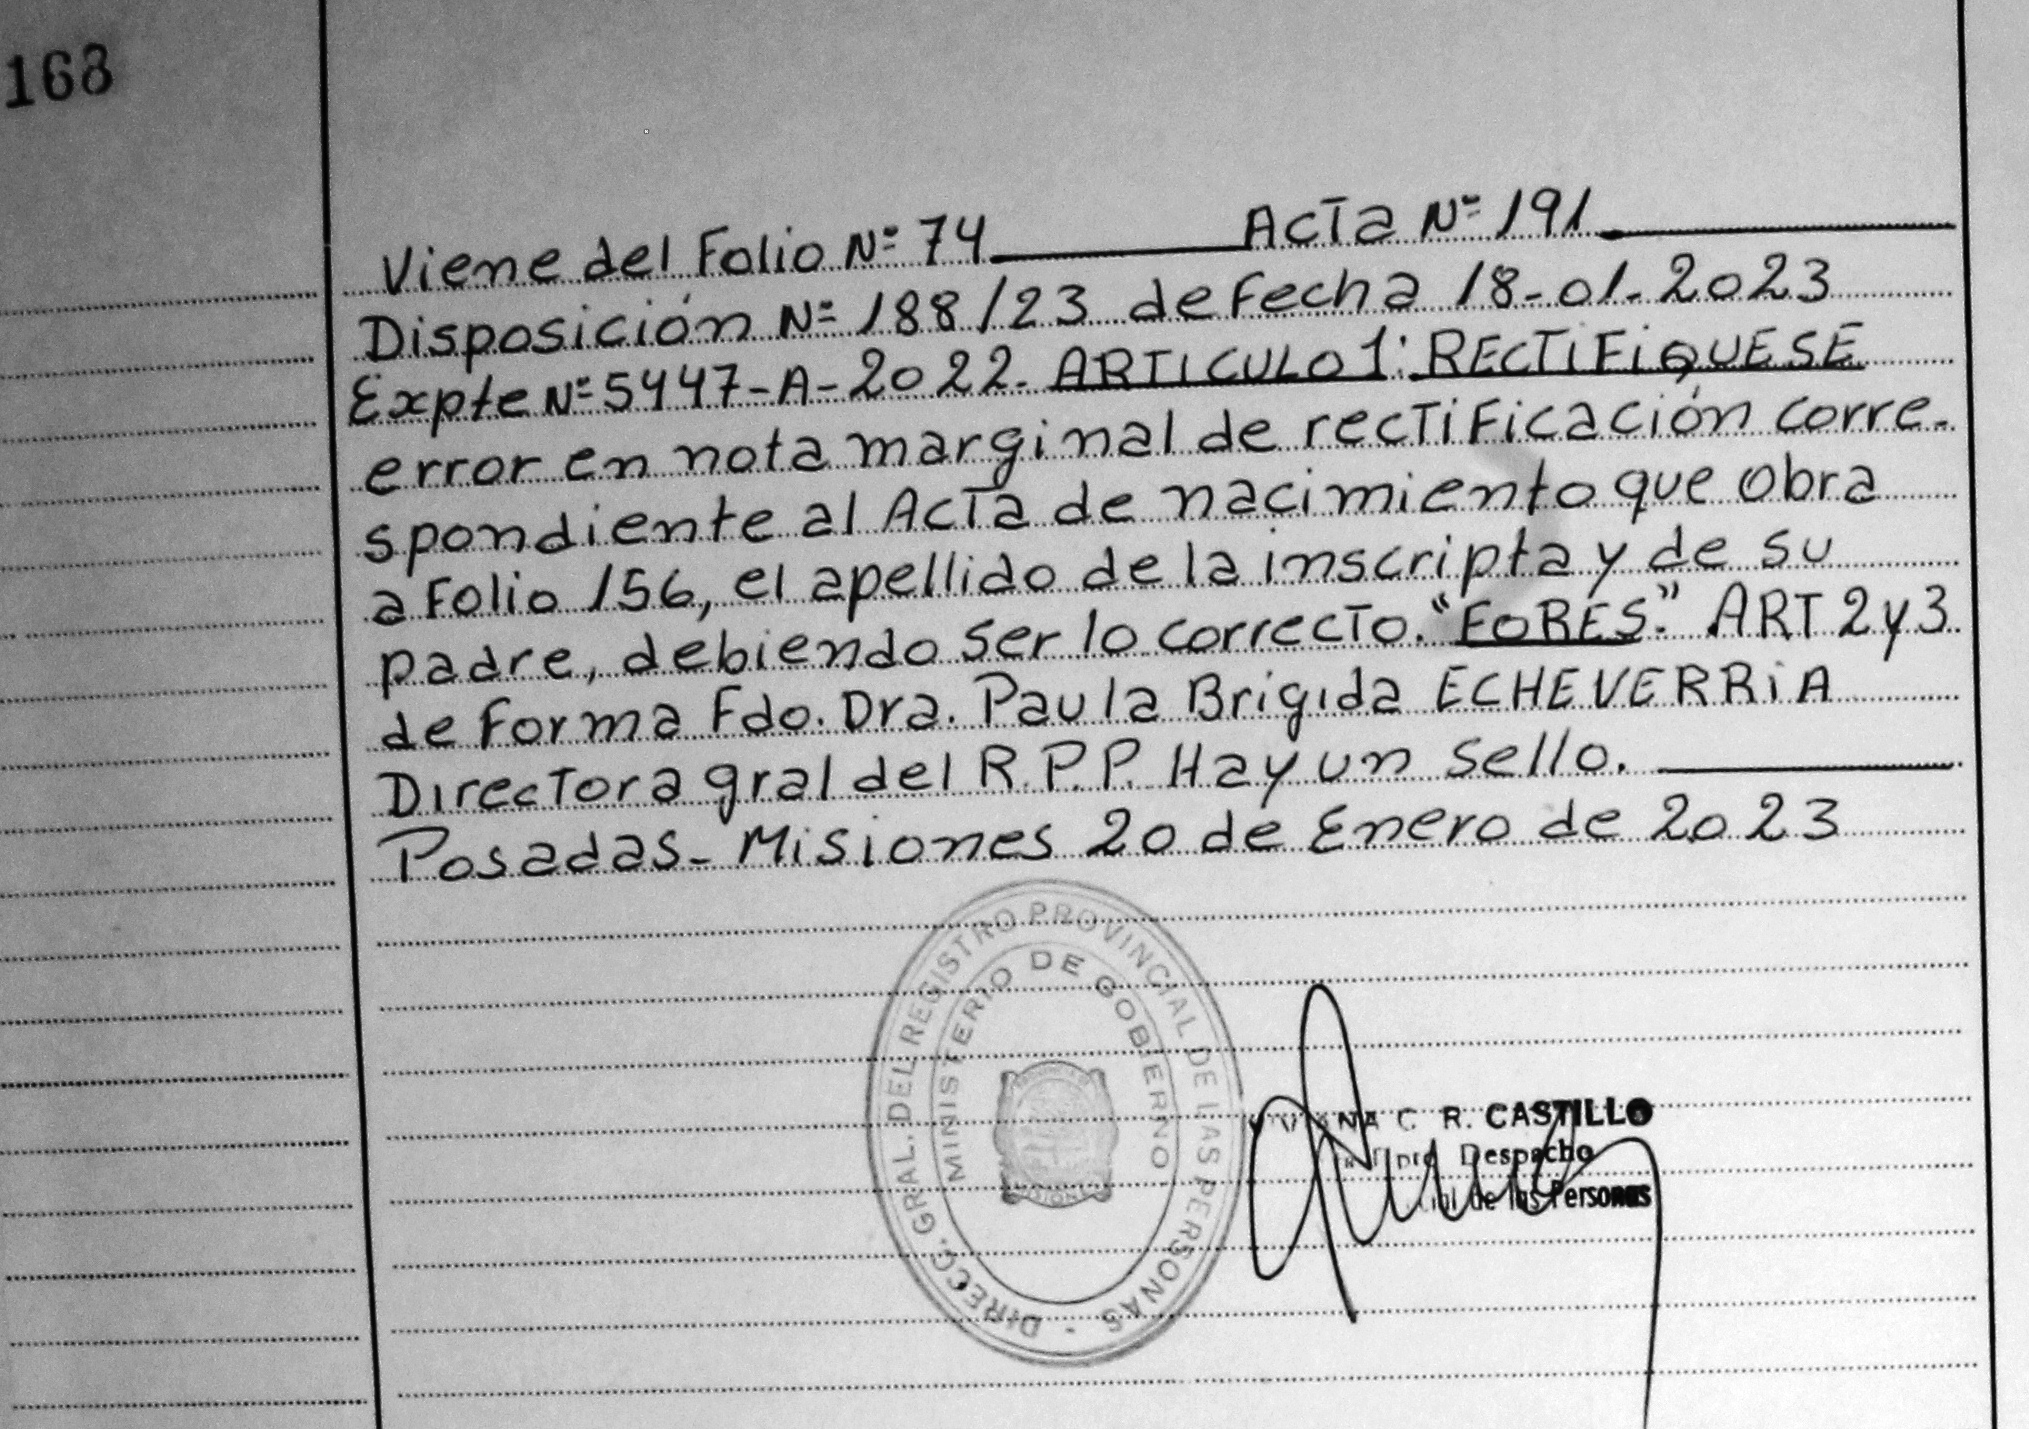 168
Viene del Folio Nº 74 Acta Nº 191
Disposición Nº 188/23 de Fecha 18-01-2023
Expte Nº 5447-A-2022. ARTICULO 1: RECTIFIQUESE
error en nota marginal de rectificación corre-
spondiente al Acta de nacimiento que obra
a Folio 156, el apellido de la inscripta y de su
padre, debiendo ser lo correcto. "FORES". ART 2 y 3
de Forma Fdo. Dra. Paula Brigida ECHEVERRIA
Directora gral del R.P.P. Hay un sello.
Posadas- Misiones 20 de Enero de 2023
DIRECC. GRAL. DEL REGISTRO PROVINCIAL DE LAS PERSONAS -
MINISTERIO DE GOBIERNO
C. R. CASTILLO
Despacho
de las Personas